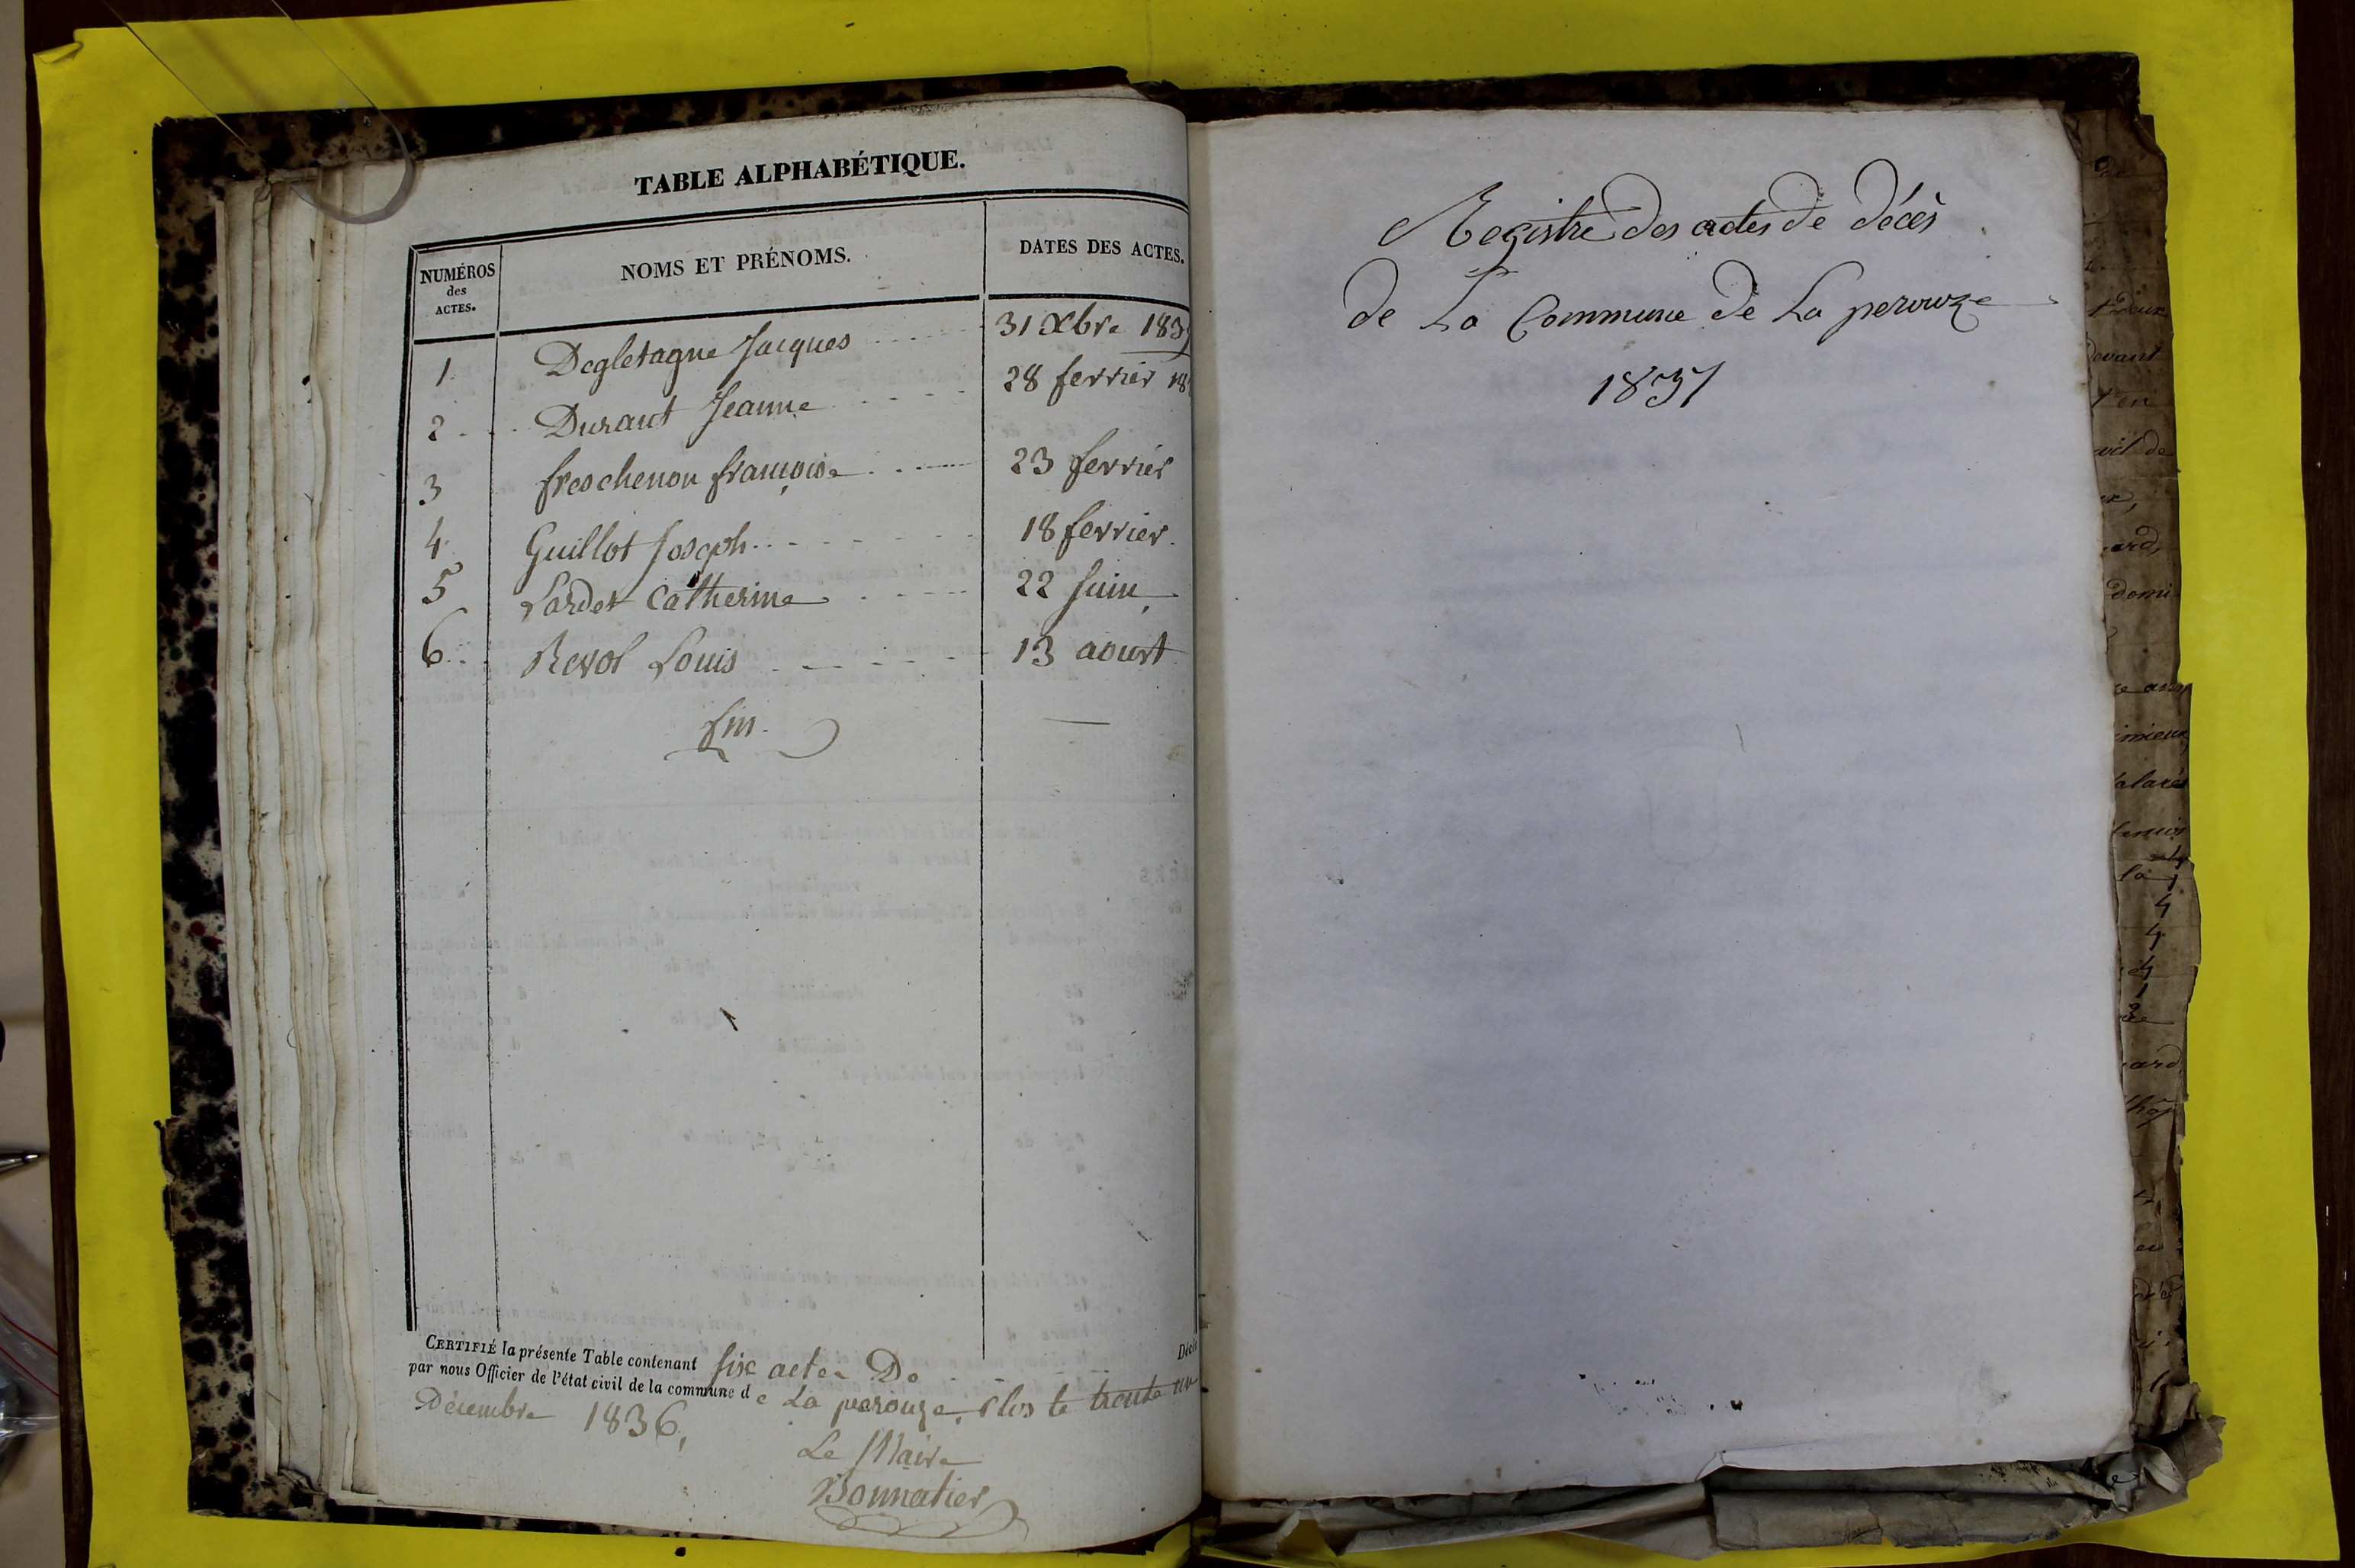 TABLE ALPHABÉTIQUE.
NUMÉROS
des
ACTES.
NOMS ET PRÉNOMS.
DATES DES ACTES.
1 Degletagne Jacques 31 Xbre
2 Durant Jeanne 28 fevrier
3 freschenon françoise 23 fevrier
4 Guillot Joseph 18 fevrier
5 Lardet Catherine 22 Juin
6 Revol Louis 13 aoust
fin.
CERTIFIÉ la présente Table contenant six actes De
par nous Officier de l'état civil de la commune de La perouze, Clos le trente un
Décembre 1836,
Le Maire
Bonnatier
Registre des actes de décès
de La Commune de La perouze
1837